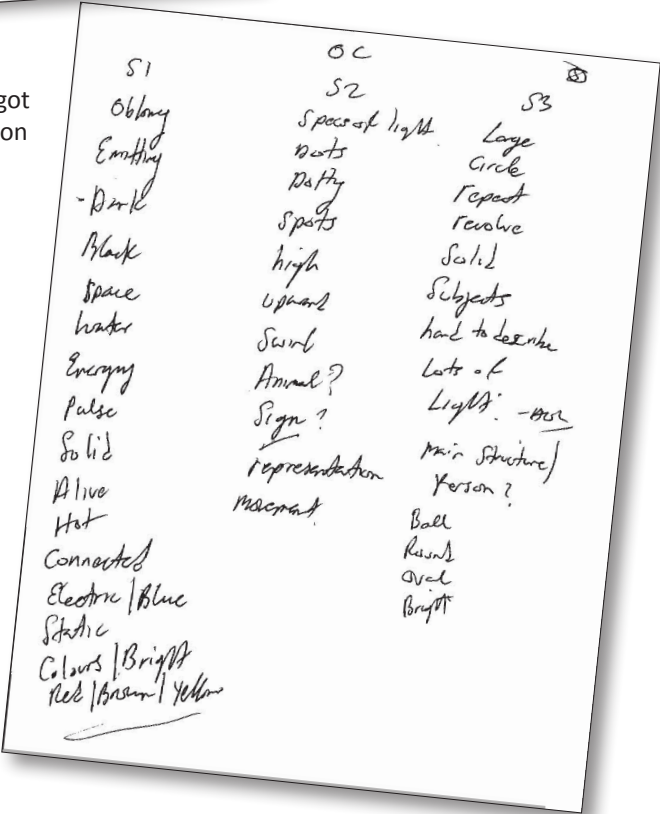 got
on
OC
S1
Oblong
Emitting
- Dark
Black
Space
water
Energy
Pulse
Solid
Alive
Hot
Connected
Electric | Blue
Static
Colours | Bright
Red | Brown | Yellow
S2
Specs of light
Dots
Dotty
Spots
high
upward
Swirl
Animal?
Sign?
representation
movement
S3
Large
Circle
repeat
revolve
Solid
Subjects
hard to describe
Lots of
Light. -
Main Structure/
Person?
Ball
Round
Oval
Bright